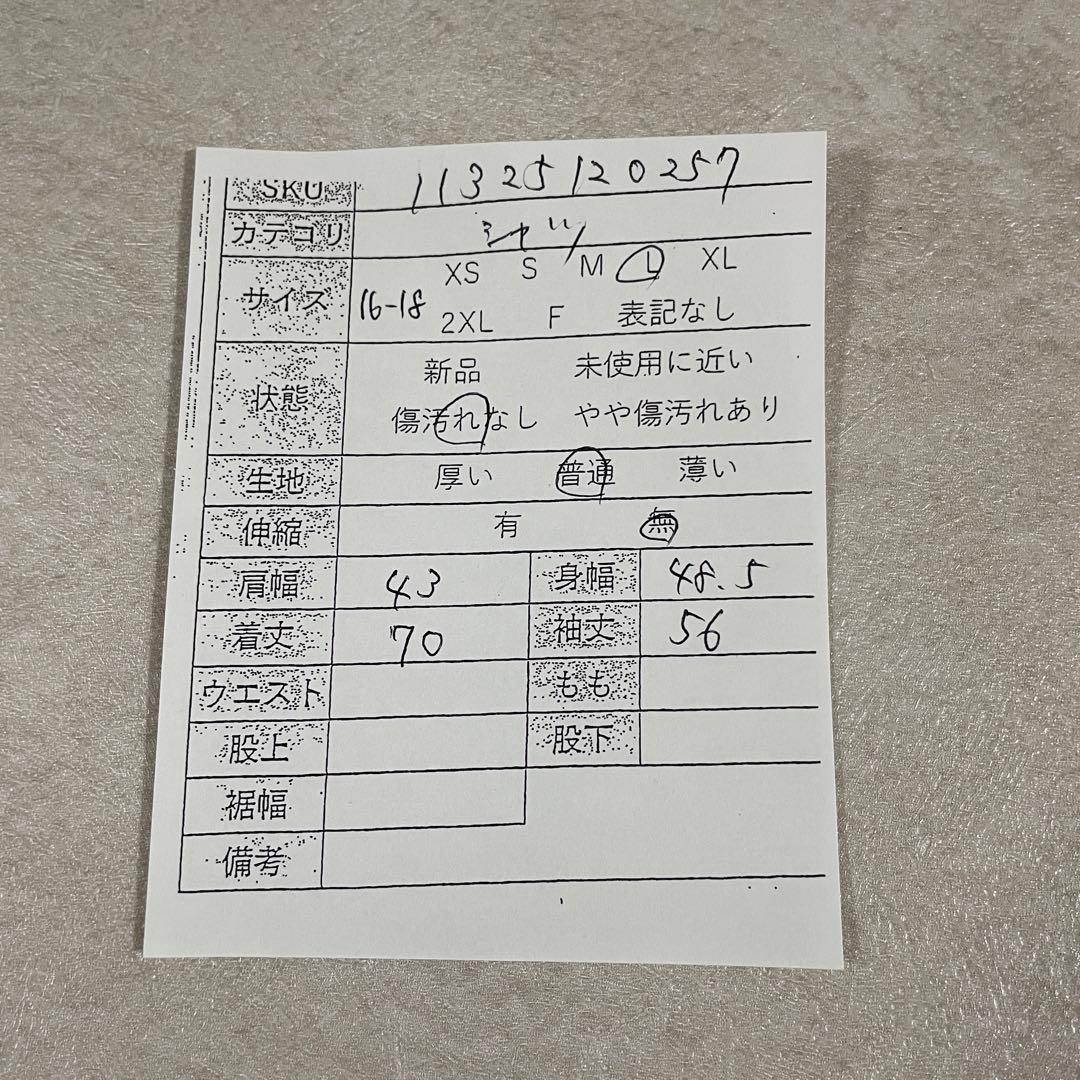 SKU 11325120257
カテゴリ シャツ
サイズ 16-18 XS S M L XL
2XL F 表記なし
状態 新品 未使用に近い
傷汚れなし やや傷汚れあり
生地 厚い 普通 薄い
伸縮 有 無
肩幅 43 身幅 48.5
着丈 70 袖丈 56
ウエスト もも
股上 股下
裾幅
備考